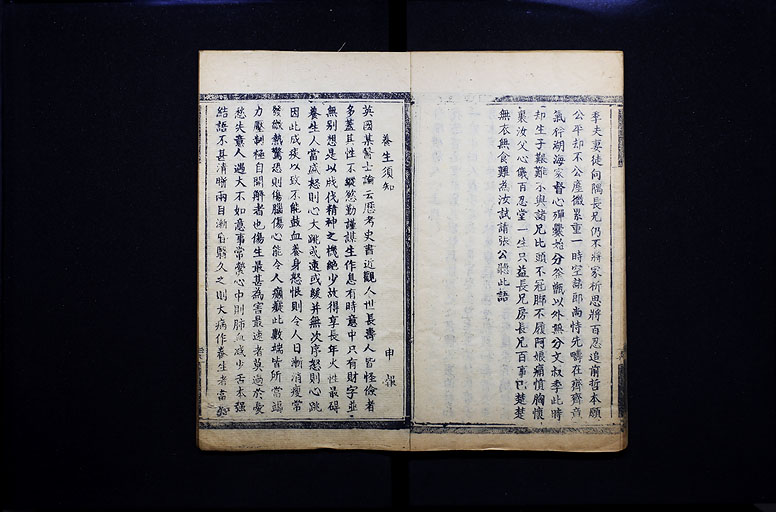 季夫妻徒向隅長兄仍不將家析思將百忍追前哲本願
公平却不公塵微累重一時空諸郎尚恃先疇在齊齊
氣行湖海家督心殫爨始分釜甑以外無分文叔季此時
却生子艱難不與諸兄比頭不冠腳不履阿娘痛憤胸懷
裏汝父心儀百忍堂一生只益長兄房長兄百事已楚楚
無衣無食難為汝試請張公聽此語
養生須知　申報
英國某醫士論云歷考史書近觀人世長壽人皆怪儉者
多蓋其性不縱慾勤謹謀生作息有時意中只有財字並
無别想是以戕伐精神之機絶少故得享長年火性最碍
養生人當盛怒則心大跳或速或緩并無次序怒則心跳
因此成痰以致不能鼓血養身怒恨則令人日漸消瘦常
發熱驚恐則傷腦傷心能令人癲癡此數端皆所當竭
力壓制極自開解者也傷生最甚為害最速者莫過於憂
愁失意人遇大不如意事常縈心中則肺血减少舌本强
結語不甚清晰兩目漸昏翳久之則大病作養生者當